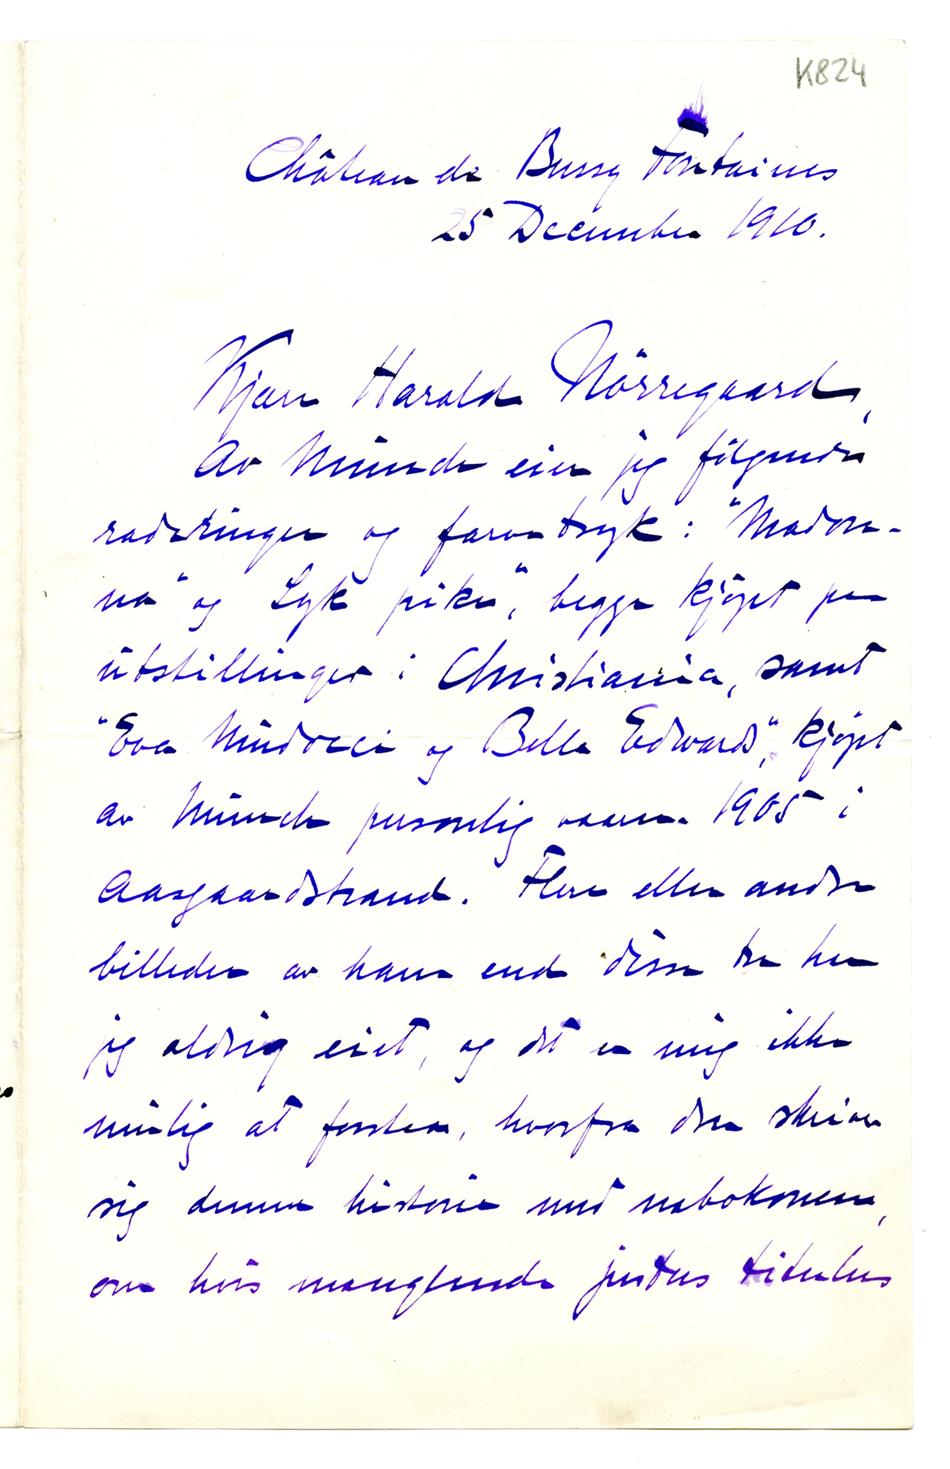 K824
Château de Bussy Fontaines
25 December 1910.
Kjære Harald Nörregaard,
Av Munch eier jeg følgende
raderinger og farvetryk: "Madon-
na" og Syk pike", begge kjøpt paa
utstillinger i Christiania, samt
"Eva Mudocci og Bella Edwards", kjøpt
av Munch personlig vaaren 1905 i
Aasgaardstrand. Flere eller andre
billeder av ham end disse tre har
jeg aldrig eiet, og det er mig ikke
mulig at forstaa, hvorfra den skriver
sig denne historie med nabokonen,
om hvis manglende justus titulus